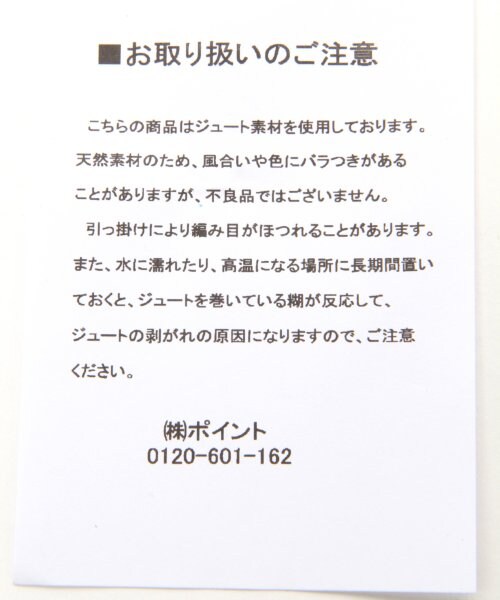 ■お取り扱いのご注意
こちらの商品はジュート素材を使用しております。
天然素材のため、風合いや色にバラつきがある
ことがありますが、不良品ではございません。
引っ掛けにより編み目がほつれることがあります。
また、水に濡れたり、高温になる場所に長期間置い
ておくと、ジュートを巻いている糊が反応して、
ジュートの剥がれの原因になりますので、ご注意
ください。
㈱ポイント
0120-601-162